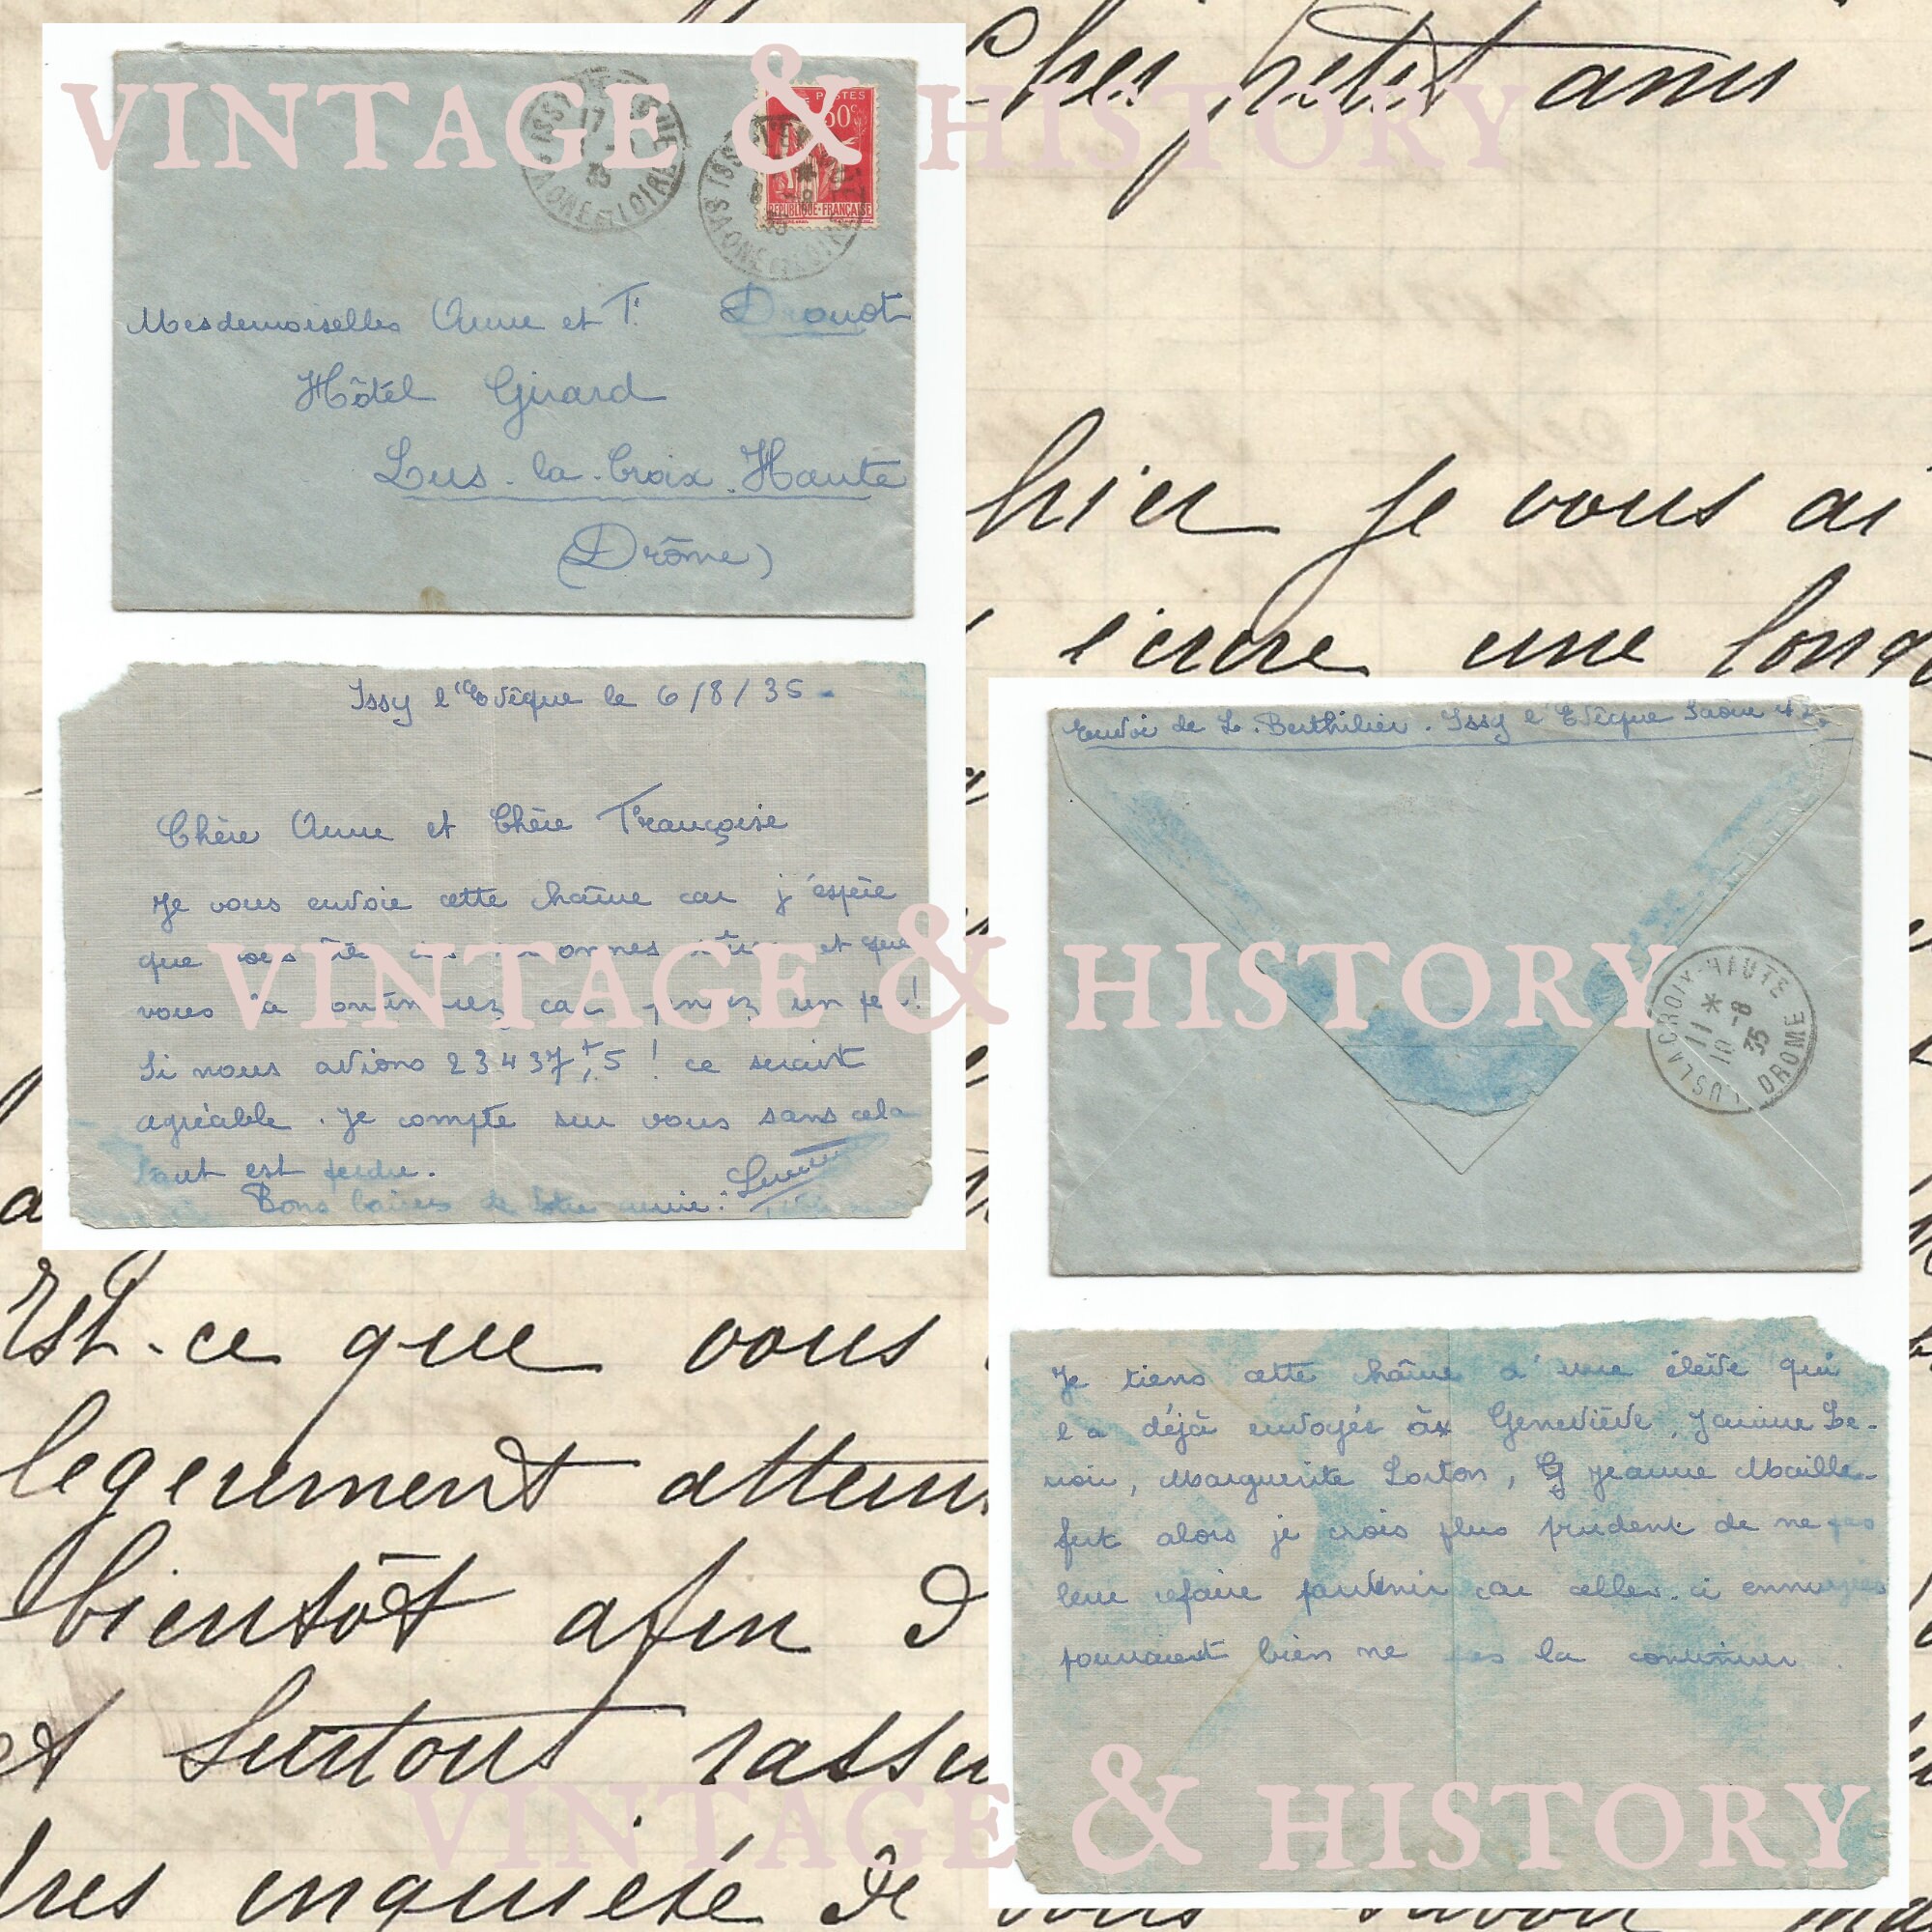 VINTAGE & HISTORY
POSTES
50c
REPUBLIQUE-FRANÇAISE
SAONE ET LOIRE
Mesdemoiselles Anne et F. Drouot
Hôtel Girard
Lus-la-Croix-Haute
(Drôme)
Issy l'Evêque le 6/8/35
Chère Anne et Chère Françoise
Je vous envoie cette chaîne car j'espère
que et que
vous la continuez car un peu!
Si nous avions 23437, 5! ce serait
agréable. Je compte sur vous sans cela
tout est perdu.
Bons baisers de votre amie:
VINTAGE & HISTORY
Envoi de L. Berthilier. Issy l'Evêque Saône et L.
LUS LA CROIX-HAUTE
11 *
10 -8
35
DROME
Je tiens cette chaîne d'une élève qui
l'a déjà envoyée à Geneviève, Janine Le-
noir, Marguerite Lorton, Jeanne Maille-
fert alors je crois plus prudent de ne pas
leur refaire parvenir car celles-ci ennuyées
pourraient bien ne pas la continuer.
VINTAGE & HISTORY
Cher petit ami
hier je vous ai
écrire une long
Est-ce que vous
legerement
bientôt afin d
et surtout rassu
inquiete de